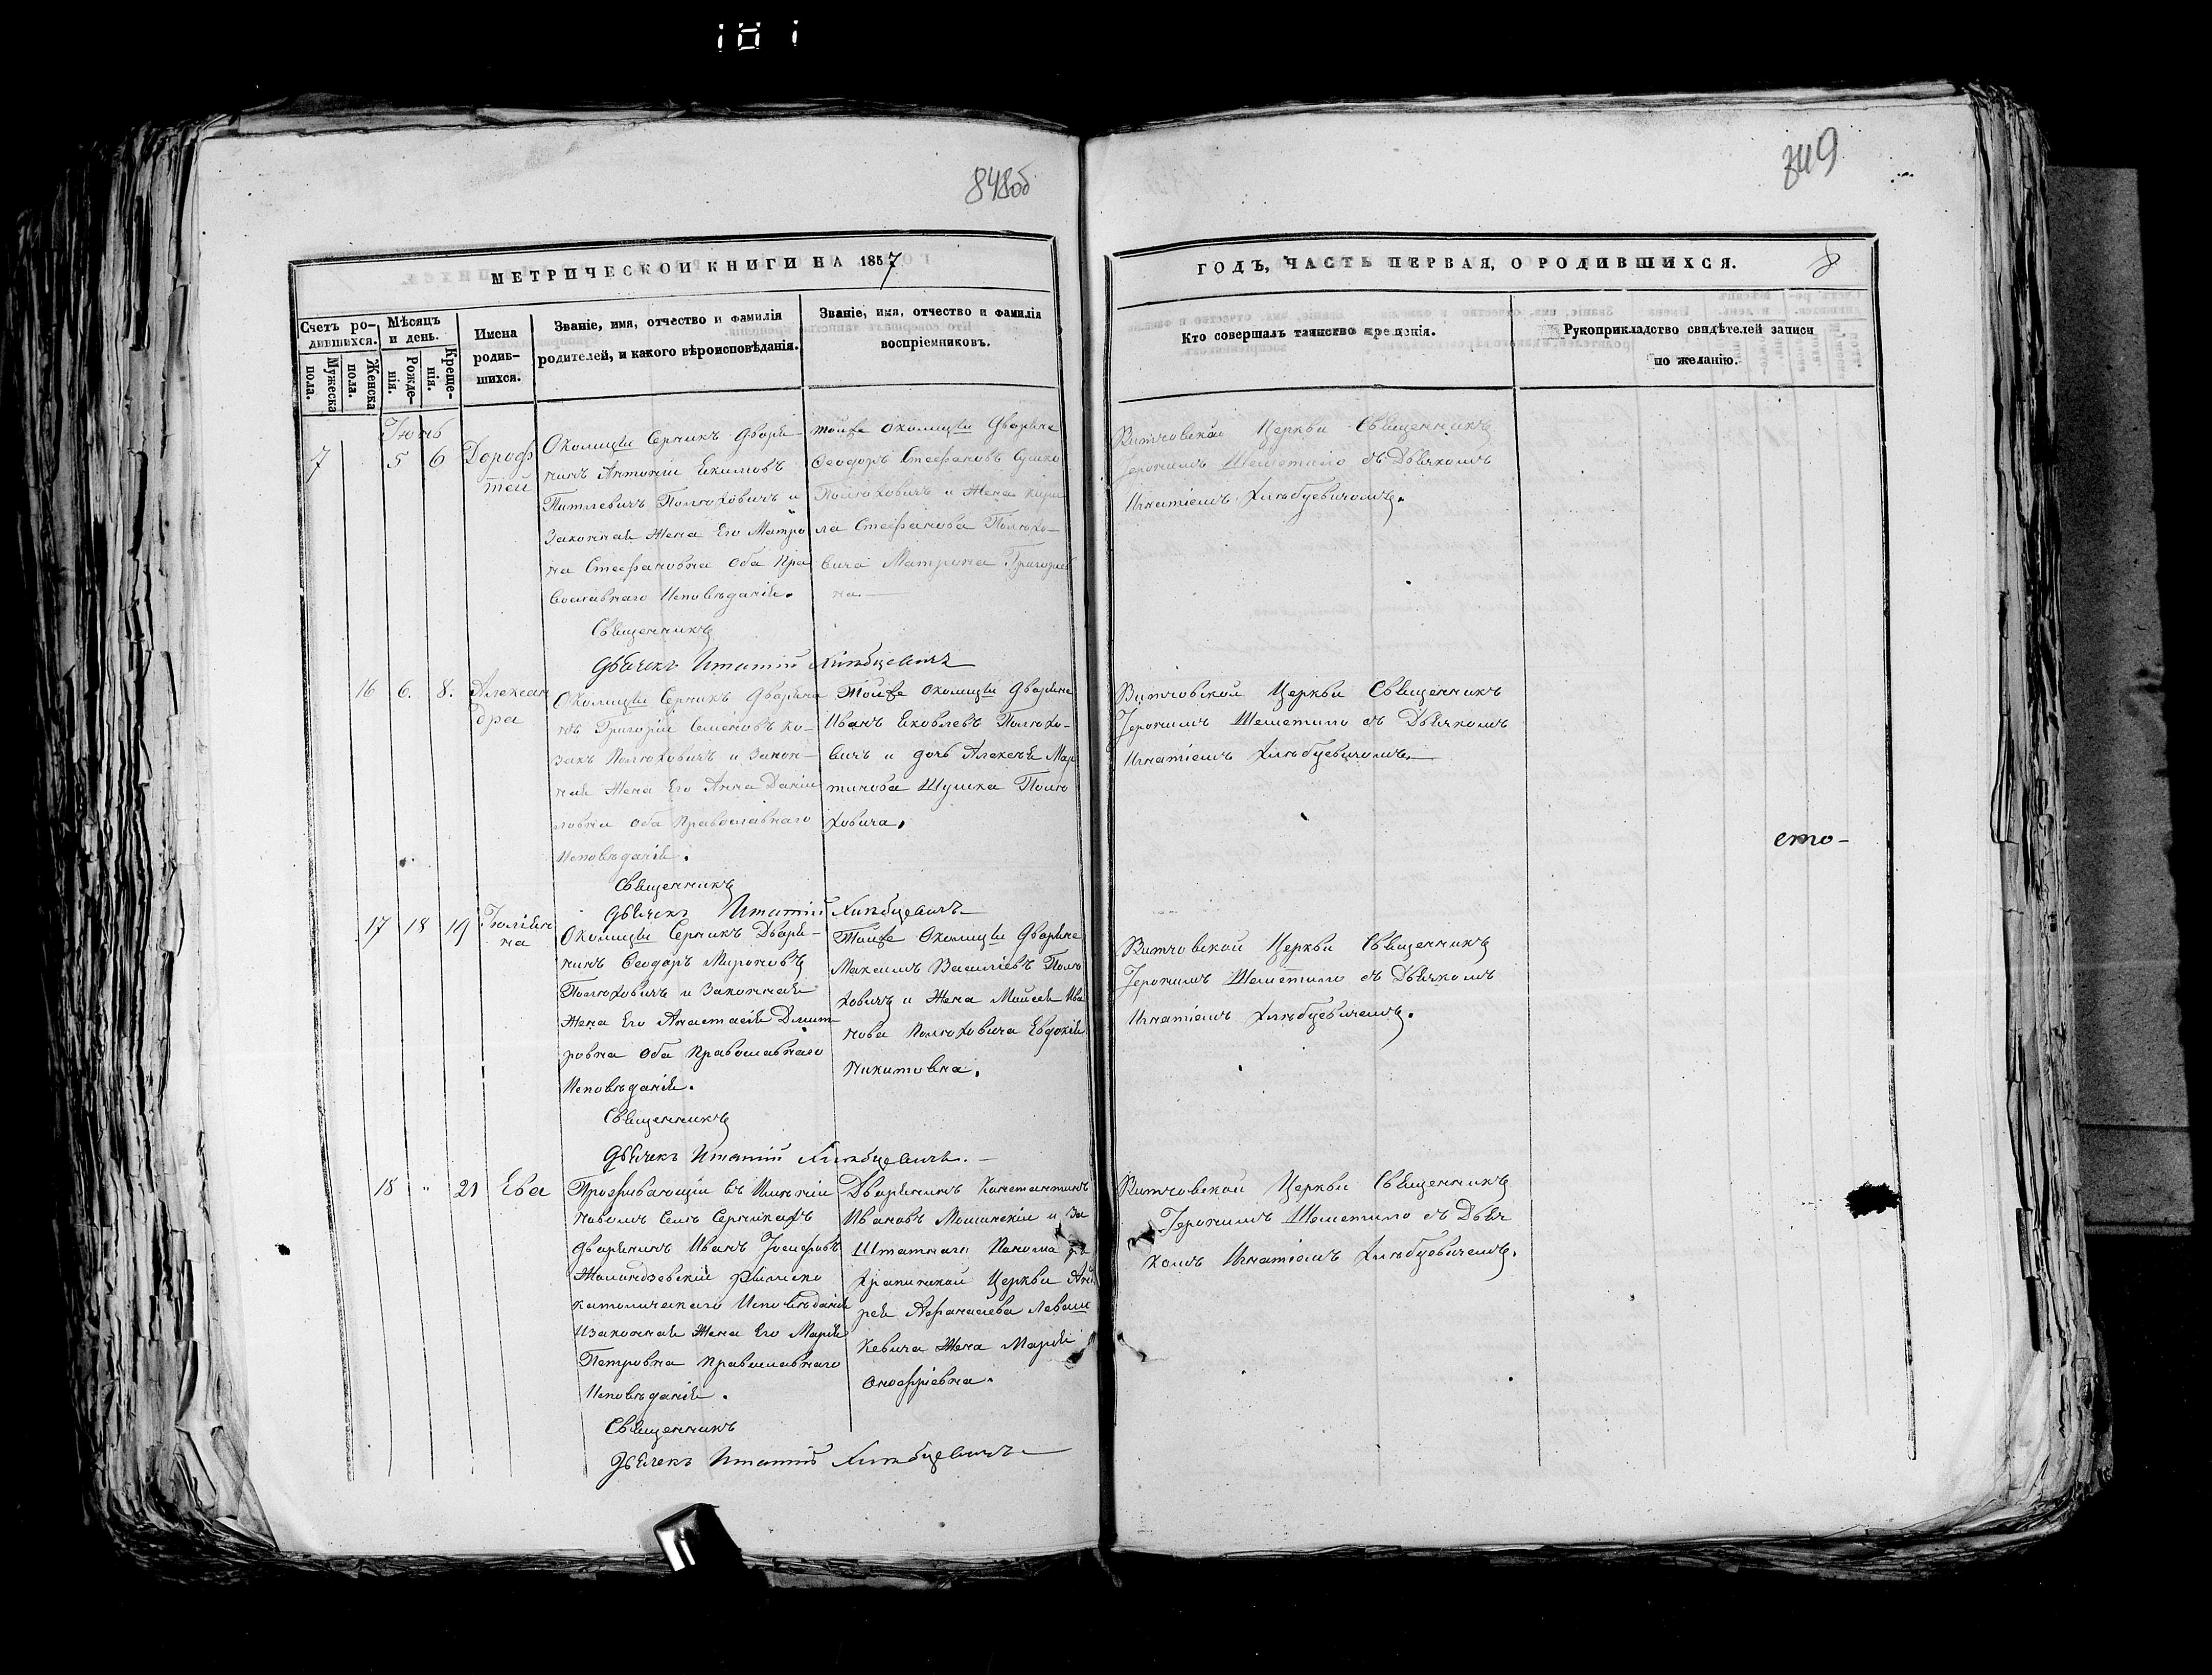 848об
849
МЕТРИЧЕСКОЙ КНИГИ НА 1857
ГОДЪ, ЧАСТЬ ПЕРВАЯ, О РОДИВШИХСЯ.
8
Счетъ ро-
дившихся.
Мужеска
пола.
Женска
пола.
Мѣсяцъ
и день.
Рожде-
нія.
Креще-
нія.
Имена
родив-
шихся.
Званіе, имя, отчество и фамилія
родителей, и какого вѣроисповѣданія.
Званіе, имя, отчество и фамилія
воспріемниковъ.
Кто совершалъ таинство крещенія.
Рукоприкладство свидѣтелей записи
по желанію.
Іюнь
7
5
6
Дороф
тей
Околицы Серникъ Дворя-
нинъ Антоній Екимовъ
Полюховичъ и
Законная Жена Его Матро
на Стефановна Оба Пра
вославнаго Исповѣданія.
Священникъ
Дьячекъ Игнатій Хлѣбцевичъ
тойже околицы Дворяне
Феодоръ Стефановъ Сушко
Полюховичъ и Жена Кири
ла Стефанова Полюхо-
вича Матрона Григорьев
на
Витчовской Церкви Священникъ
Іеронимъ Шеметилло съ Дьячкомъ
Игнатіемъ Хлѣбцевичомъ.
16
6.
8.
Алексан
дра
Околицы Серникъ Дворяни
нъ Григорій Семеновъ Ко-
закъ Полюховичъ и Закон-
ная Жена Его Анна Даніи
ловна Оба Православнаго
Исповѣданія.
Священникъ
Дьячекъ Игнатій Хлѣбцевичъ
Тойже околицы Дворяне
Иванъ Яковлевъ Полюхо-
вичъ и дочь Алексѣя Мар
тинова Шушка Полю
ховича.
Витчовской Церкви Священникъ
Іеронимъ Шеметилло съ Дьячкомъ
Игнатіемъ Хлѣбцевичомъ.
сто-
17
18
19
Іюліян
на
Околицы Серникъ Дворя-
нинъ Феодоръ Мироновъ
Полюховичъ и Законная
Жена Его Анастасія Дмит
ровна Оба Православнаго
Исповѣданія.
Священникъ
Дьячекъ Игнатій Хлѣбцевичъ.
Тойже Околицы Дворяне
Максимъ Василіевъ Полю
ховичъ и Жена Моисея Ива
нова Полюховича Евдокія
Никитовна.
Витчовской Церкви Священникъ
Іеронимъ Шеметилло съ Дьячкомъ
Игнатіемъ Хлѣбцевичемъ.
18
"
21
Ева
Проживающій въ
новомъ Селѣ Серникахъ
Дворянинъ Иванъ Іосифовъ
Римско
католическаго Исповѣданія
И законная Жена Его Марія
Петровна Православнаго
Исповѣданія.
Священникъ
Дьячекъ Игнатій Хлѣбцевичъ
Дворянинъ Константинъ
Ивановъ Мошинскій и За
Штатнаго Понома ря
Храпинской Церкви Анд
рея Афанасіева
Жена Марія
Онофріевна.
Витчовской Церкви Священникъ
Іеронимъ Шеметилло съ Дьяч
комъ Игнатіемъ Хлѣбцевичемъ.